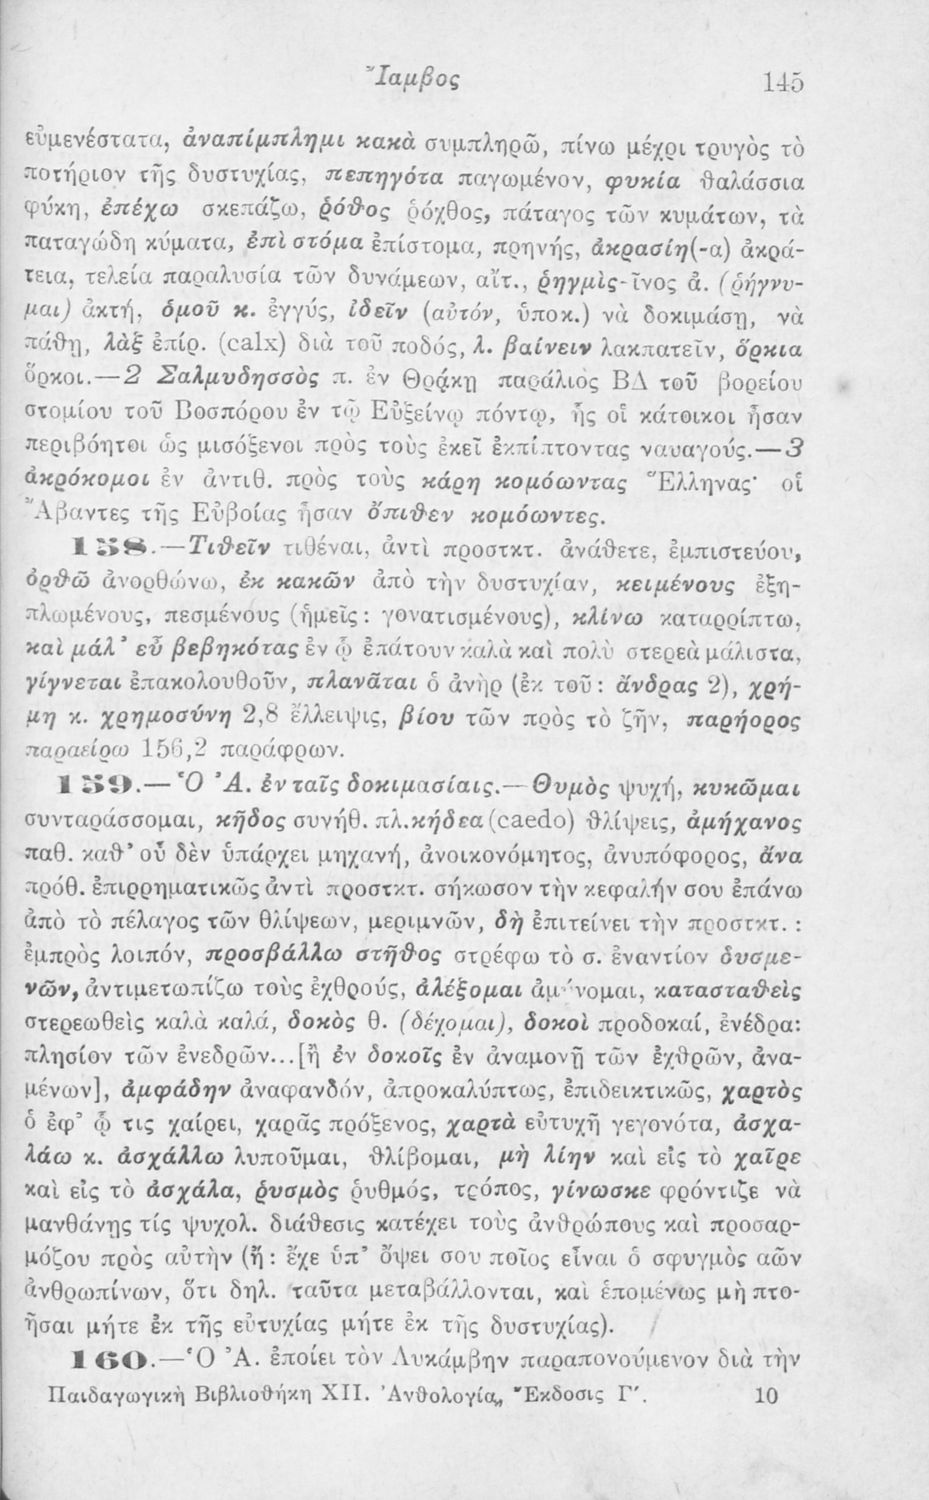 Ἴαμβος 145
εὐμενέστατα, ἀναπίμπλημι κακὰ συμπληρῶ, πίνω μέχρι τρυγὸς τὸ
ποτήριον τῆς δυστυχίας, πεπηγότα παγωμένον, φυκία θαλάσσια
φύκη, ἐπέχω σκεπάζω, ῥόθος ῥόχθος, πάταγος τῶν κυμάτων, τὰ
παταγώδη κύματα, ἐπὶ στόμα ἐπίστομα, πρηνής, ἀκρασίη(-α) ἀκρά-
τεια, τελεία παραλυσία τῶν δυνάμεων, αἴτ., ῥηγμὶς-ῖνος ἁ. (ῥήγνυ-
μαι) ἀκτή, ὁμοῦ κ. ἐγγύς, ἰδεῖν (αὐτόν, ὑποκ.) νὰ δοκιμάσῃ, νὰ
πάθῃ, λὰξ ἐπίρ. (calx) διὰ τοῦ ποδός, λ. βαίνειν λακπατεῖν, ὅρκια
ὅρκοι.—2 Σαλμυδησσὸς π. ἐν Θρᾴκῃ παράλιὸς ΒΔ τοῦ βορείου
στομίου τοῦ Βοσπόρου ἐν τῷ Εὐξείνῳ πόντῳ, ἧς οἱ κάτοικοι ἦσαν
περιβόητοι ὡς μισόξενοι πρὸς τοὺς ἐκεῖ ἐκπίπτοντας ναυαγούς.—3
ἀκρόκομοι ἐν ἀντιθ. πρὸς τοὺς κάρη κομόωντας Ἕλληνας· οἱ
Ἄβαντες τῆς Εὐβοίας ἦσαν ὄπιθεν κομόωντες.
158.—Τιθεῖν τιθέναι, ἀντὶ προστκτ. ἀνάθετε, ἐμπιστεύου,
ὀρθῶ ἀνορθώνω, ἐκ κακῶν ἀπὸ τὴν δυστυχίαν, κειμένους ἐξη-
πλωμένους, πεσμένους (ἡμεῖς: γονατισμένους), κλίνω καταρρίπτω,
καὶ μάλ᾽ εὖ βεβηκότας ἐν ᾧ ἐπάτουν καλὰ καὶ πολὺ στερεὰ μάλιστα,
γίγνεται ἐπακολουθοῦν, πλανᾶται ὁ ἀνὴρ (ἐκ τοῦ: ἄνδρας 2), χρή-
μη κ. χρημοσύνη 2,8 ἔλλειψις, βίου τῶν πρὸς τὸ ζῆν, παρήορος
παραείρω 156,2 παράφρων.
159.—Ὁ Ἀ. ἐν ταῖς δοκιμασίαις.—Θυμὸς ψυχή, κυκῶμαι
συνταράσσομαι, κῆδος συνήθ. πλ. κήδεα (caedo) θλίψεις, ἀμήχανος
παθ. καθ᾽ οὗ δὲν ὑπάρχει μηχανή, ἀνοικονόμητος, ἀνυπόφορος, ἄνα
πρόθ. ἐπιρρηματικῶς ἀντὶ προστκτ. σήκωσον τὴν κεφαλήν σου ἐπάνω
ἀπὸ τὸ πέλαγος τῶν θλίψεων, μεριμνῶν, δὴ ἐπιτείνει τὴν προστκτ.:
ἐμπρὸς λοιπόν, προσβάλλω στῆθος στρέφω τὸ σ. ἐναντίον δυσμε-
νῶν, ἀντιμετωπίζω τοὺς ἐχθρούς, ἀλέξομαι ἀμύνομαι, κατασταθεὶς
στερεωθεὶς καλὰ καλά, δοκὸς θ. (δέχομαι), δοκοὶ προδοκαί, ἐνέδρα:
πλησίον τῶν ἐνεδρῶν...[ἢ ἐν δοκοῖς ἐν ἀναμονῇ τῶν ἐχθρῶν, ἀνα-
μένων], ἀμφάδην ἀναφανδόν, ἀπροκαλύπτως, ἐπιδεικτικῶς, χαρτὸς
ὁ ἐφ᾽ ᾧ τις χαίρει, χαρᾶς πρόξενος, χαρτὰ εὐτυχῆ γεγονότα, ἀσχα-
λάω κ. ἀσχάλλω λυποῦμαι, θλίβομαι, μὴ λίην καὶ εἰς τὸ χαῖρε
καὶ εἰς τὸ ἀσχάλα, ῥυσμὸς ῥυθμός, τρόπος, γίνωσκε φρόντιζε νὰ
μανθάνῃς τίς ψυχολ. διάθεσις κατέχει τοὺς ἀνθρώπους καὶ προσαρ-
μόζου πρὸς αὐτὴν (ἤ: ἔχε ὑπ᾽ ὄψει σου ποῖος εἶναι ὁ σφυγμὸς αῶν
ἀνθρωπίνων, ὅτι δηλ. ταῦτα μεταβάλλονται, καὶ ἑπομένως μὴ πτο-
ῆσαι μήτε ἐκ τῆς εὐτυχίας μήτε ἐκ τῆς δυστυχίας).
160.—Ὁ Ἀ. ἐποίει τὸν Λυκάμβην παραπονούμενον διὰ τὴν
Παιδαγωγικὴ Βιβλιοθήκη XII. Ἀνθολογία, Ἔκδοσις Γ΄. 10